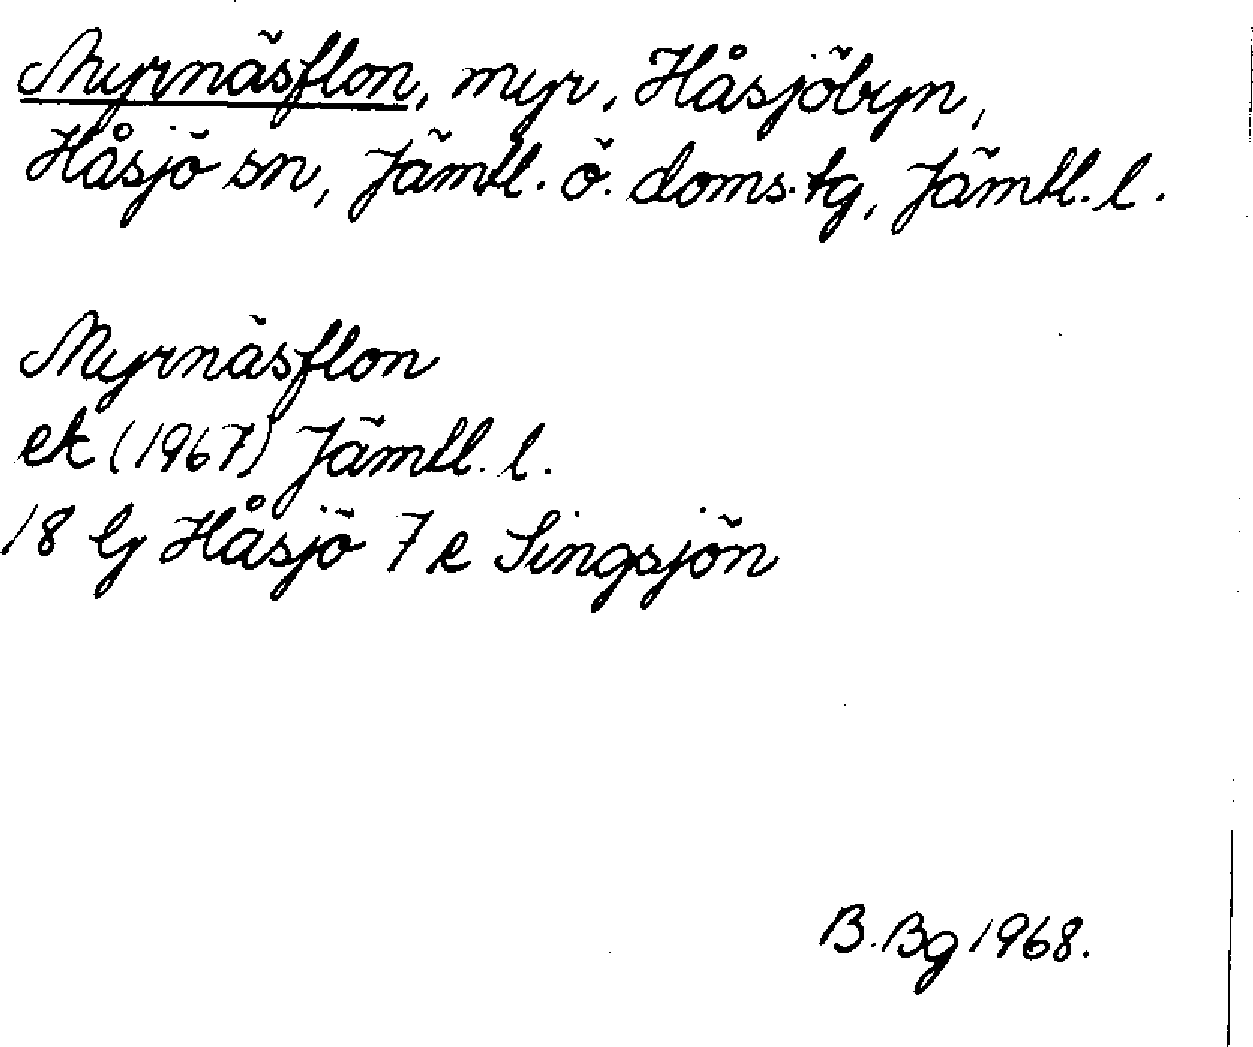 Myrnäsflon, myr, Håsjöbyn,
Håsjö sn, Jämtl. ö. doms.tg, Jämtl. l.
Myrnäsflon
ek (1967) Jämtl. l.
18 G Håsjö 7 e Singsjön
B. Bg 1968.